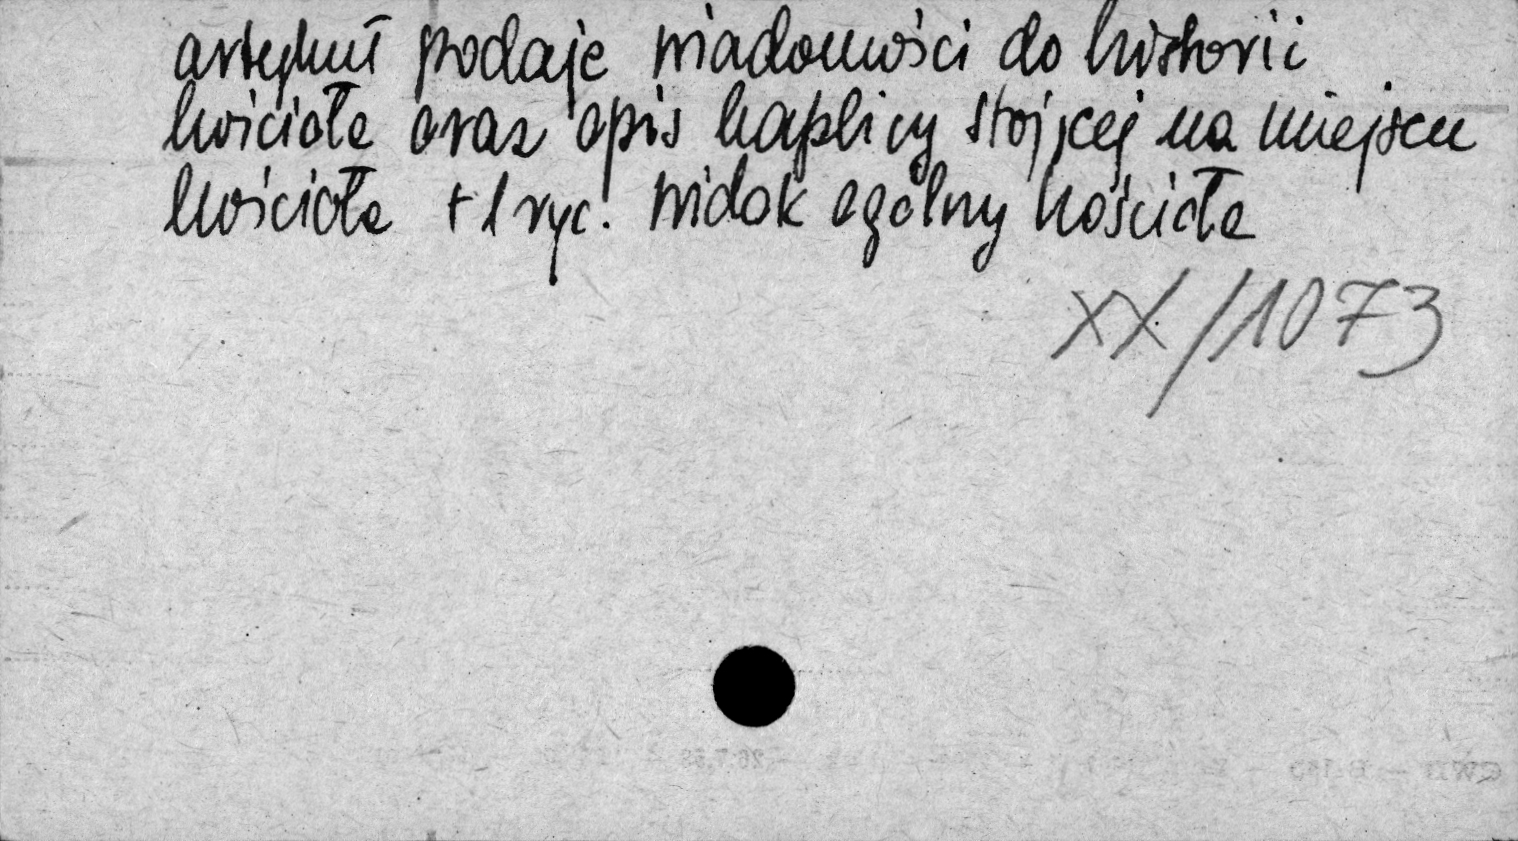 artykuł podaje wiadomości do historii
kościoła oraz opis kaplicy stojącej na miejscu
kościoła + 1 ryc. widok ogólny kościoła
XX/1073